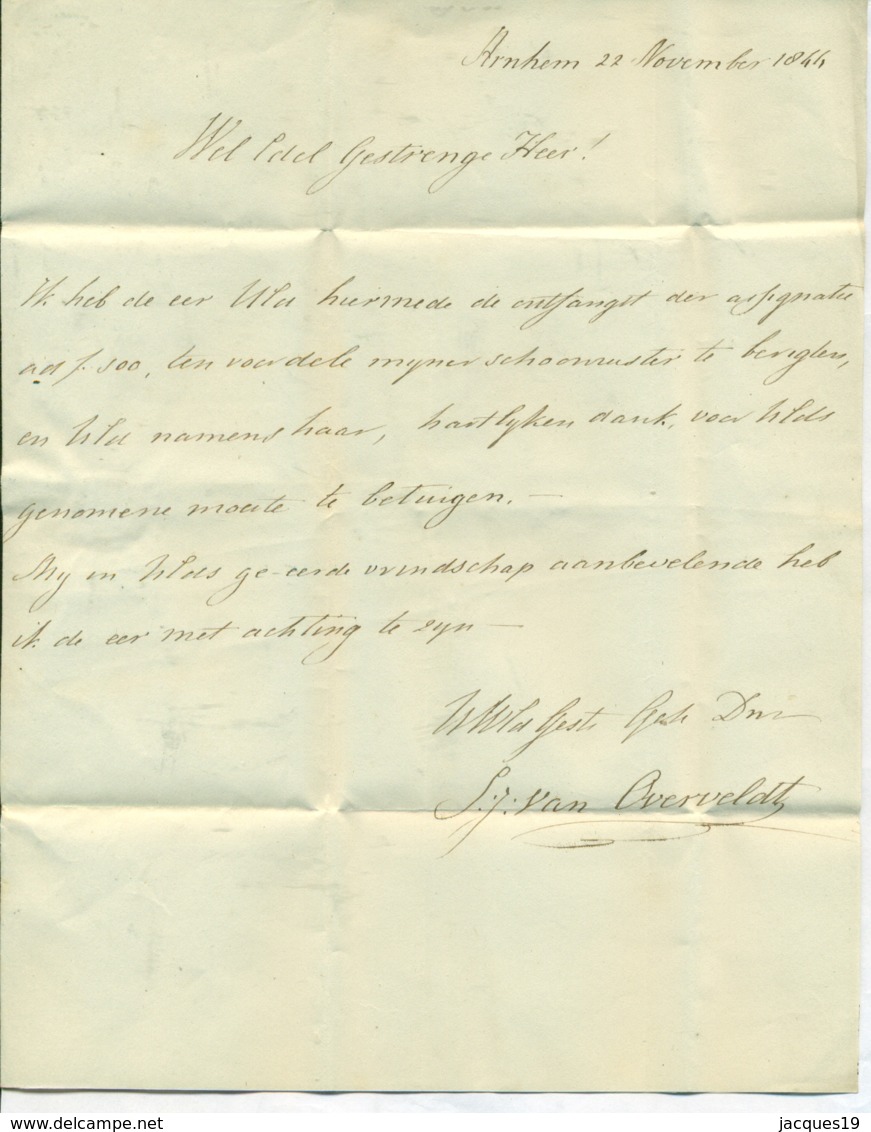 Arnhem 22 November 1844
Wel Edel Gestrenge Heer!
Ik heb de eer UEd hiermede de ontfangst der assignatie
ad ƒ 500, ten voordele mijner schoonzuster te berigten,
en UEd namens haar, hartlyken dank, voor UEds
genomene moeite te betuigen. —
My in UEds ge-eerde vrindschap aanbevelende heb
ik de eer met achting te zyn —
UWEd Gestr Geh Dnr
S. J. van Overveldt
jacques19